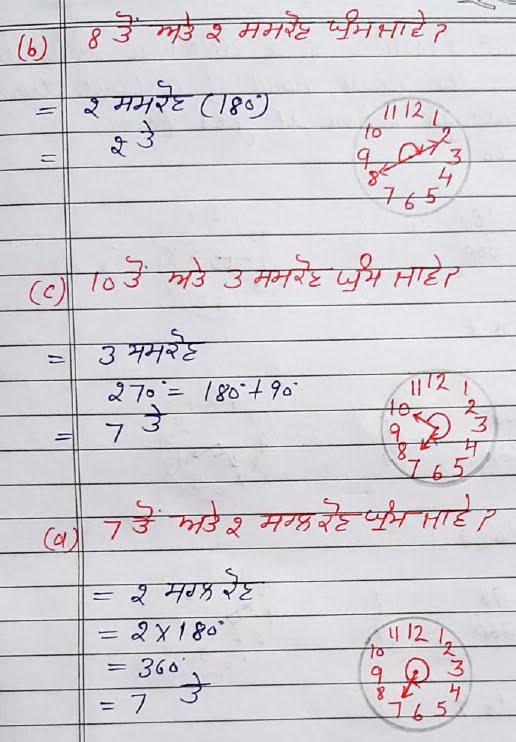 (b) 8 ਤੋਂ ਅਤੇ 2 ਸਮਕੋਣ ਘੁੰਮ ਜਾਵੇ?
= 2 ਸਮਕੋਣ (180°)
= 2 ਤੇ
11 12 1
10 2
9 3
8 4
7 6 5
(c) 10 ਤੋਂ ਅਤੇ 3 ਸਮਕੋਣ ਘੁੰਮ ਜਾਵੇ?
= 3 ਸਮਕੋਣ
270° = 180° + 90°
= 7 ਤੇ
11 12 1
10 2
9 3
8 4
7 6 5
(a) 7 ਤੋਂ ਅਤੇ 2 ਸਰਲ ਕੋਣ ਘੁੰਮ ਜਾਵੇ?
= 2 ਸਰਲ ਕੋਣ
= 2 × 180°
= 360°
= 7 ਤੇ
11 12 1
10 2
9 3
8 4
7 6 5